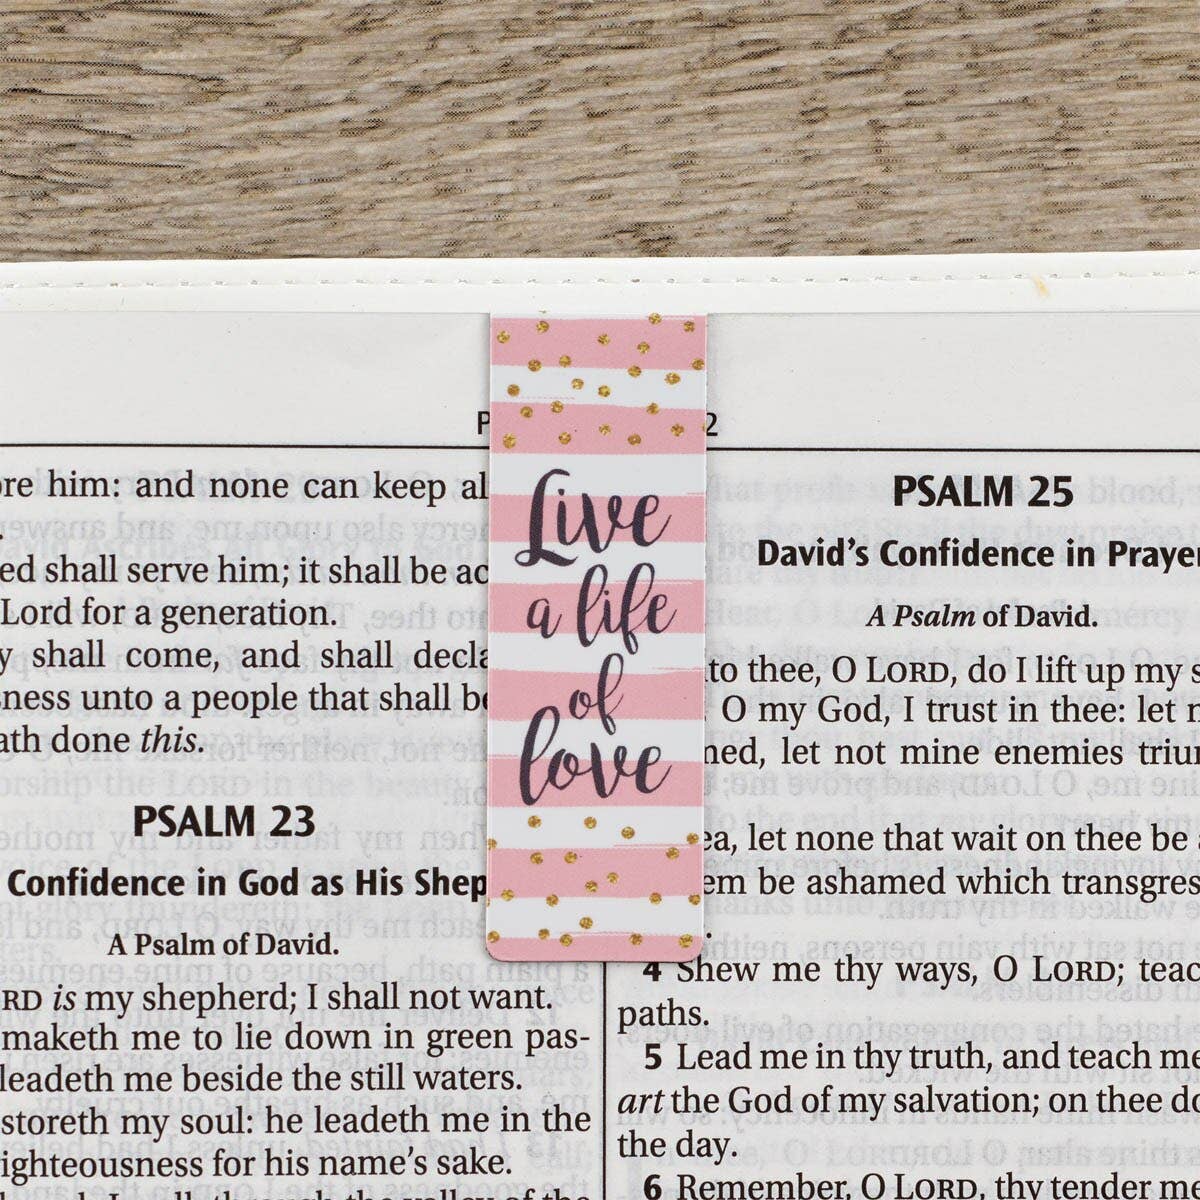 Live
a life
of
love
P
2
ore him: and none can keep al
ed shall serve him; it shall be ac
Lord for a generation.
y shall come, and shall decla
sness unto a people that shall be
ath done this.
PSALM 23
Confidence in God as His Shep
A Psalm of David.
RD is my shepherd; I shall not want.
maketh me to lie down in green pas-
leadeth me beside the still waters.
storeth my soul: he leadeth me in the
ighteousness for his name's sake.
PSALM 25
David's Confidence in Prayer
A Psalm of David.
to thee, O LORD, do I lift up my s
O my God, I trust in thee: let
med, let not mine enemies triu
ea, let none that wait on thee be
em be ashamed which transgres
4 Shew me thy ways, O LORD; teac
paths.
5 Lead me in thy truth, and teach me
art the God of my salvation; on thee do
the day.
6 Remember, O LORD, thy tender me